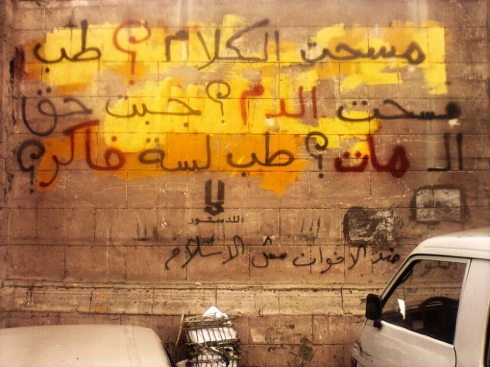 مسحت الكلام ؟ طب
مسحت الدم ؟ جبت حق
الـ مات ؟ طب لسة فاكر ؟
لا
للدستور
ضد الاخوان مش الاسلام